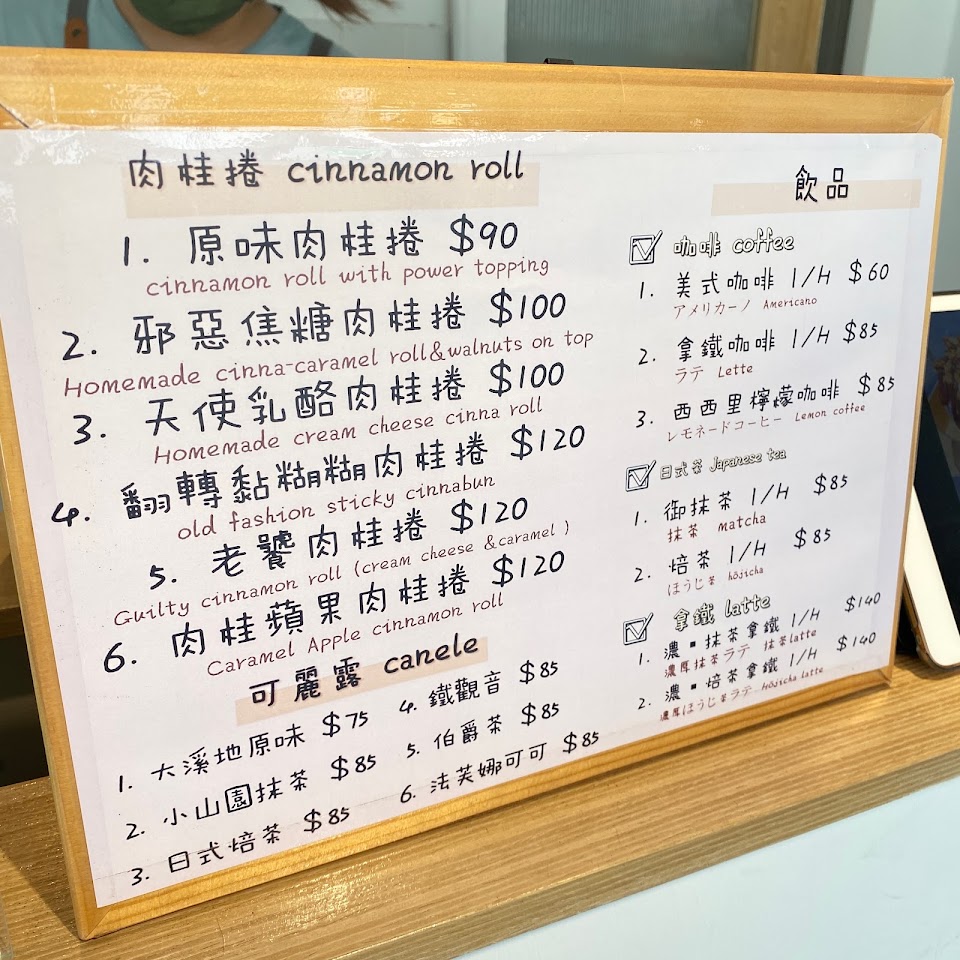 肉桂捲 cinnamon roll
1. 原味肉桂捲 $90
cinnamon roll with power topping
2. 邪惡焦糖肉桂捲 $100
Homemade cinna-caramel roll&walnuts on top
3. 天使乳酪肉桂捲 $100
Homemade cream cheese cinna roll
4. 翻轉黏糊糊肉桂捲 $120
old fashion sticky cinnabun
5. 老饕肉桂捲 $120
Guilty cinnamon roll (cream cheese &caramel )
6. 肉桂蘋果肉桂捲 $120
Caramel Apple cinnamon roll
可麗露 canele
1. 大溪地原味 $75
2. 小山園抹茶 $85
3. 日式焙茶 $85
4. 鐵觀音 $85
5. 伯爵茶 $85
6. 法芙娜可可 $85
飲品
咖啡 coffee
1. 美式咖啡 I/H $60
アメリカーノ Americano
2. 拿鐵咖啡 I/H $85
ラテ Lette
3. 西西里檸檬咖啡 $85
レモネードコーヒー Lemon coffee
日式茶 Japanese tea
1. 御抹茶 I/H $85
抹茶 matcha
2. 焙茶 I/H $85
ほうじ茶 hōjicha
拿鐵 latte
1. 濃▪抹茶拿鐵 I/H $140
濃厚抹茶ラテ 抹茶latte
2. 濃▪焙茶拿鐵 I/H $140
濃厚ほうじ茶ラテ Hōjicha latte